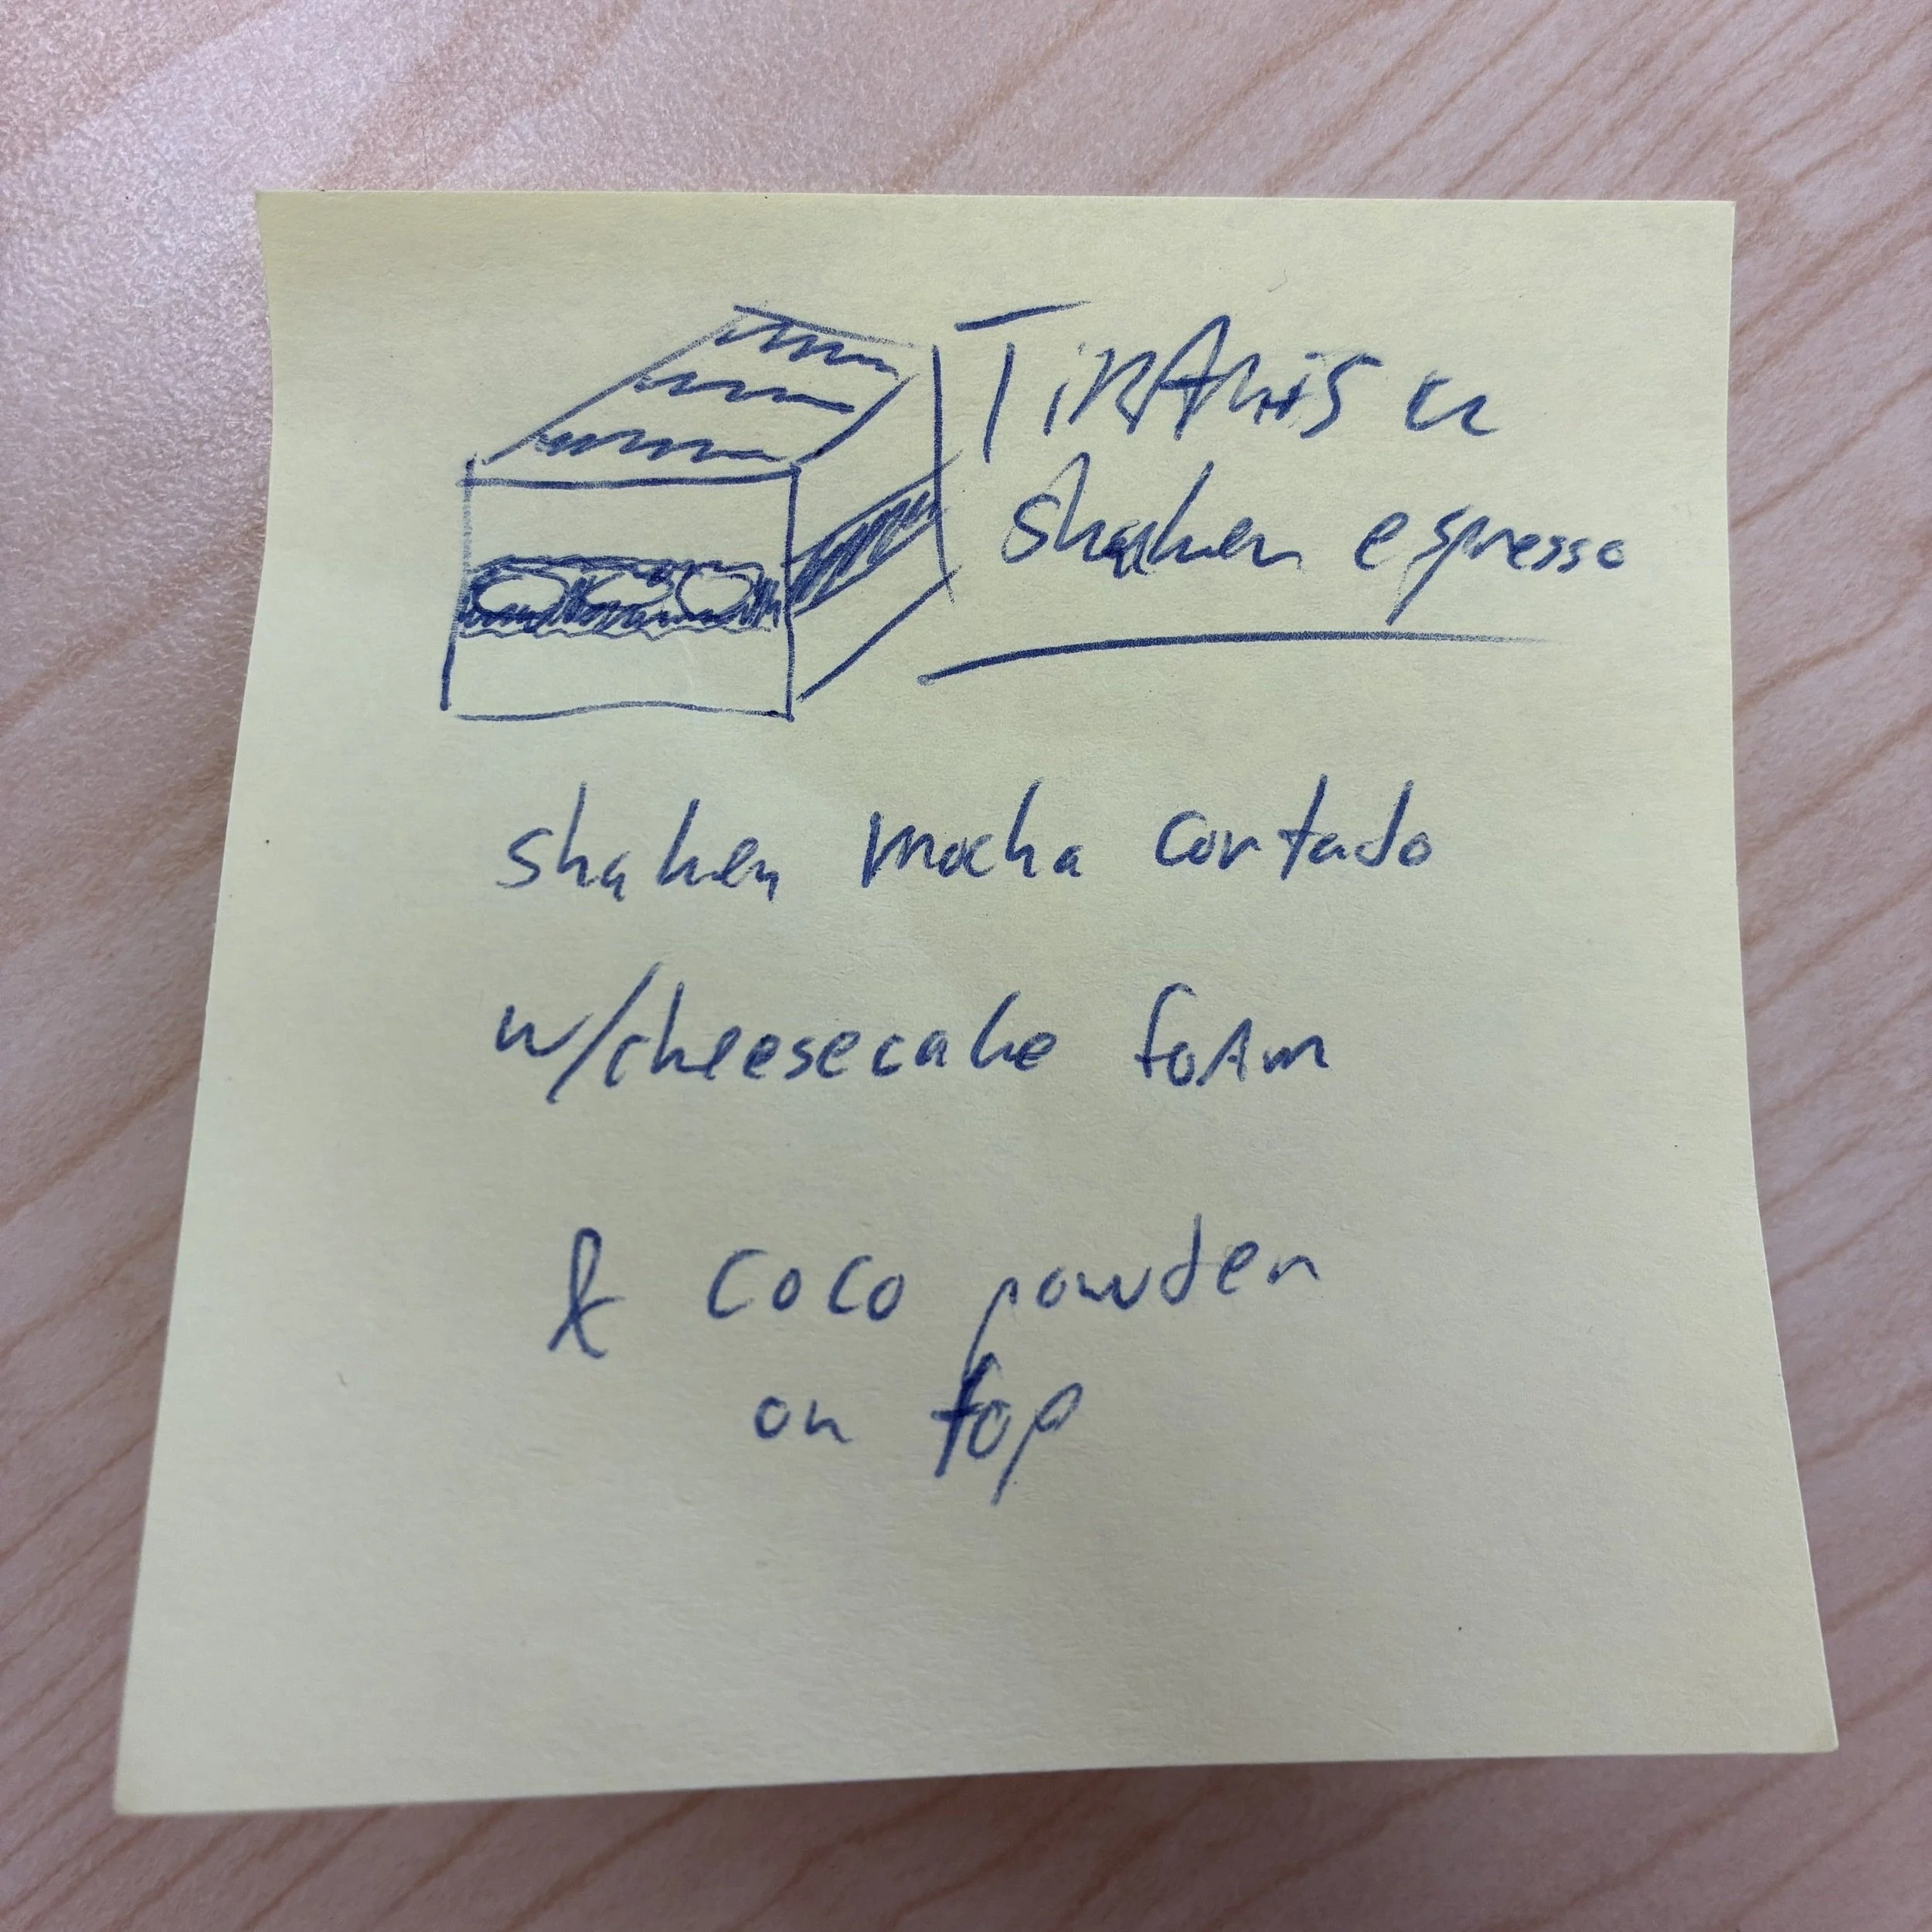 TirAmisu
shaken espresso
shaken mocha cortado
w/cheesecake foAm
& coco powder
on top